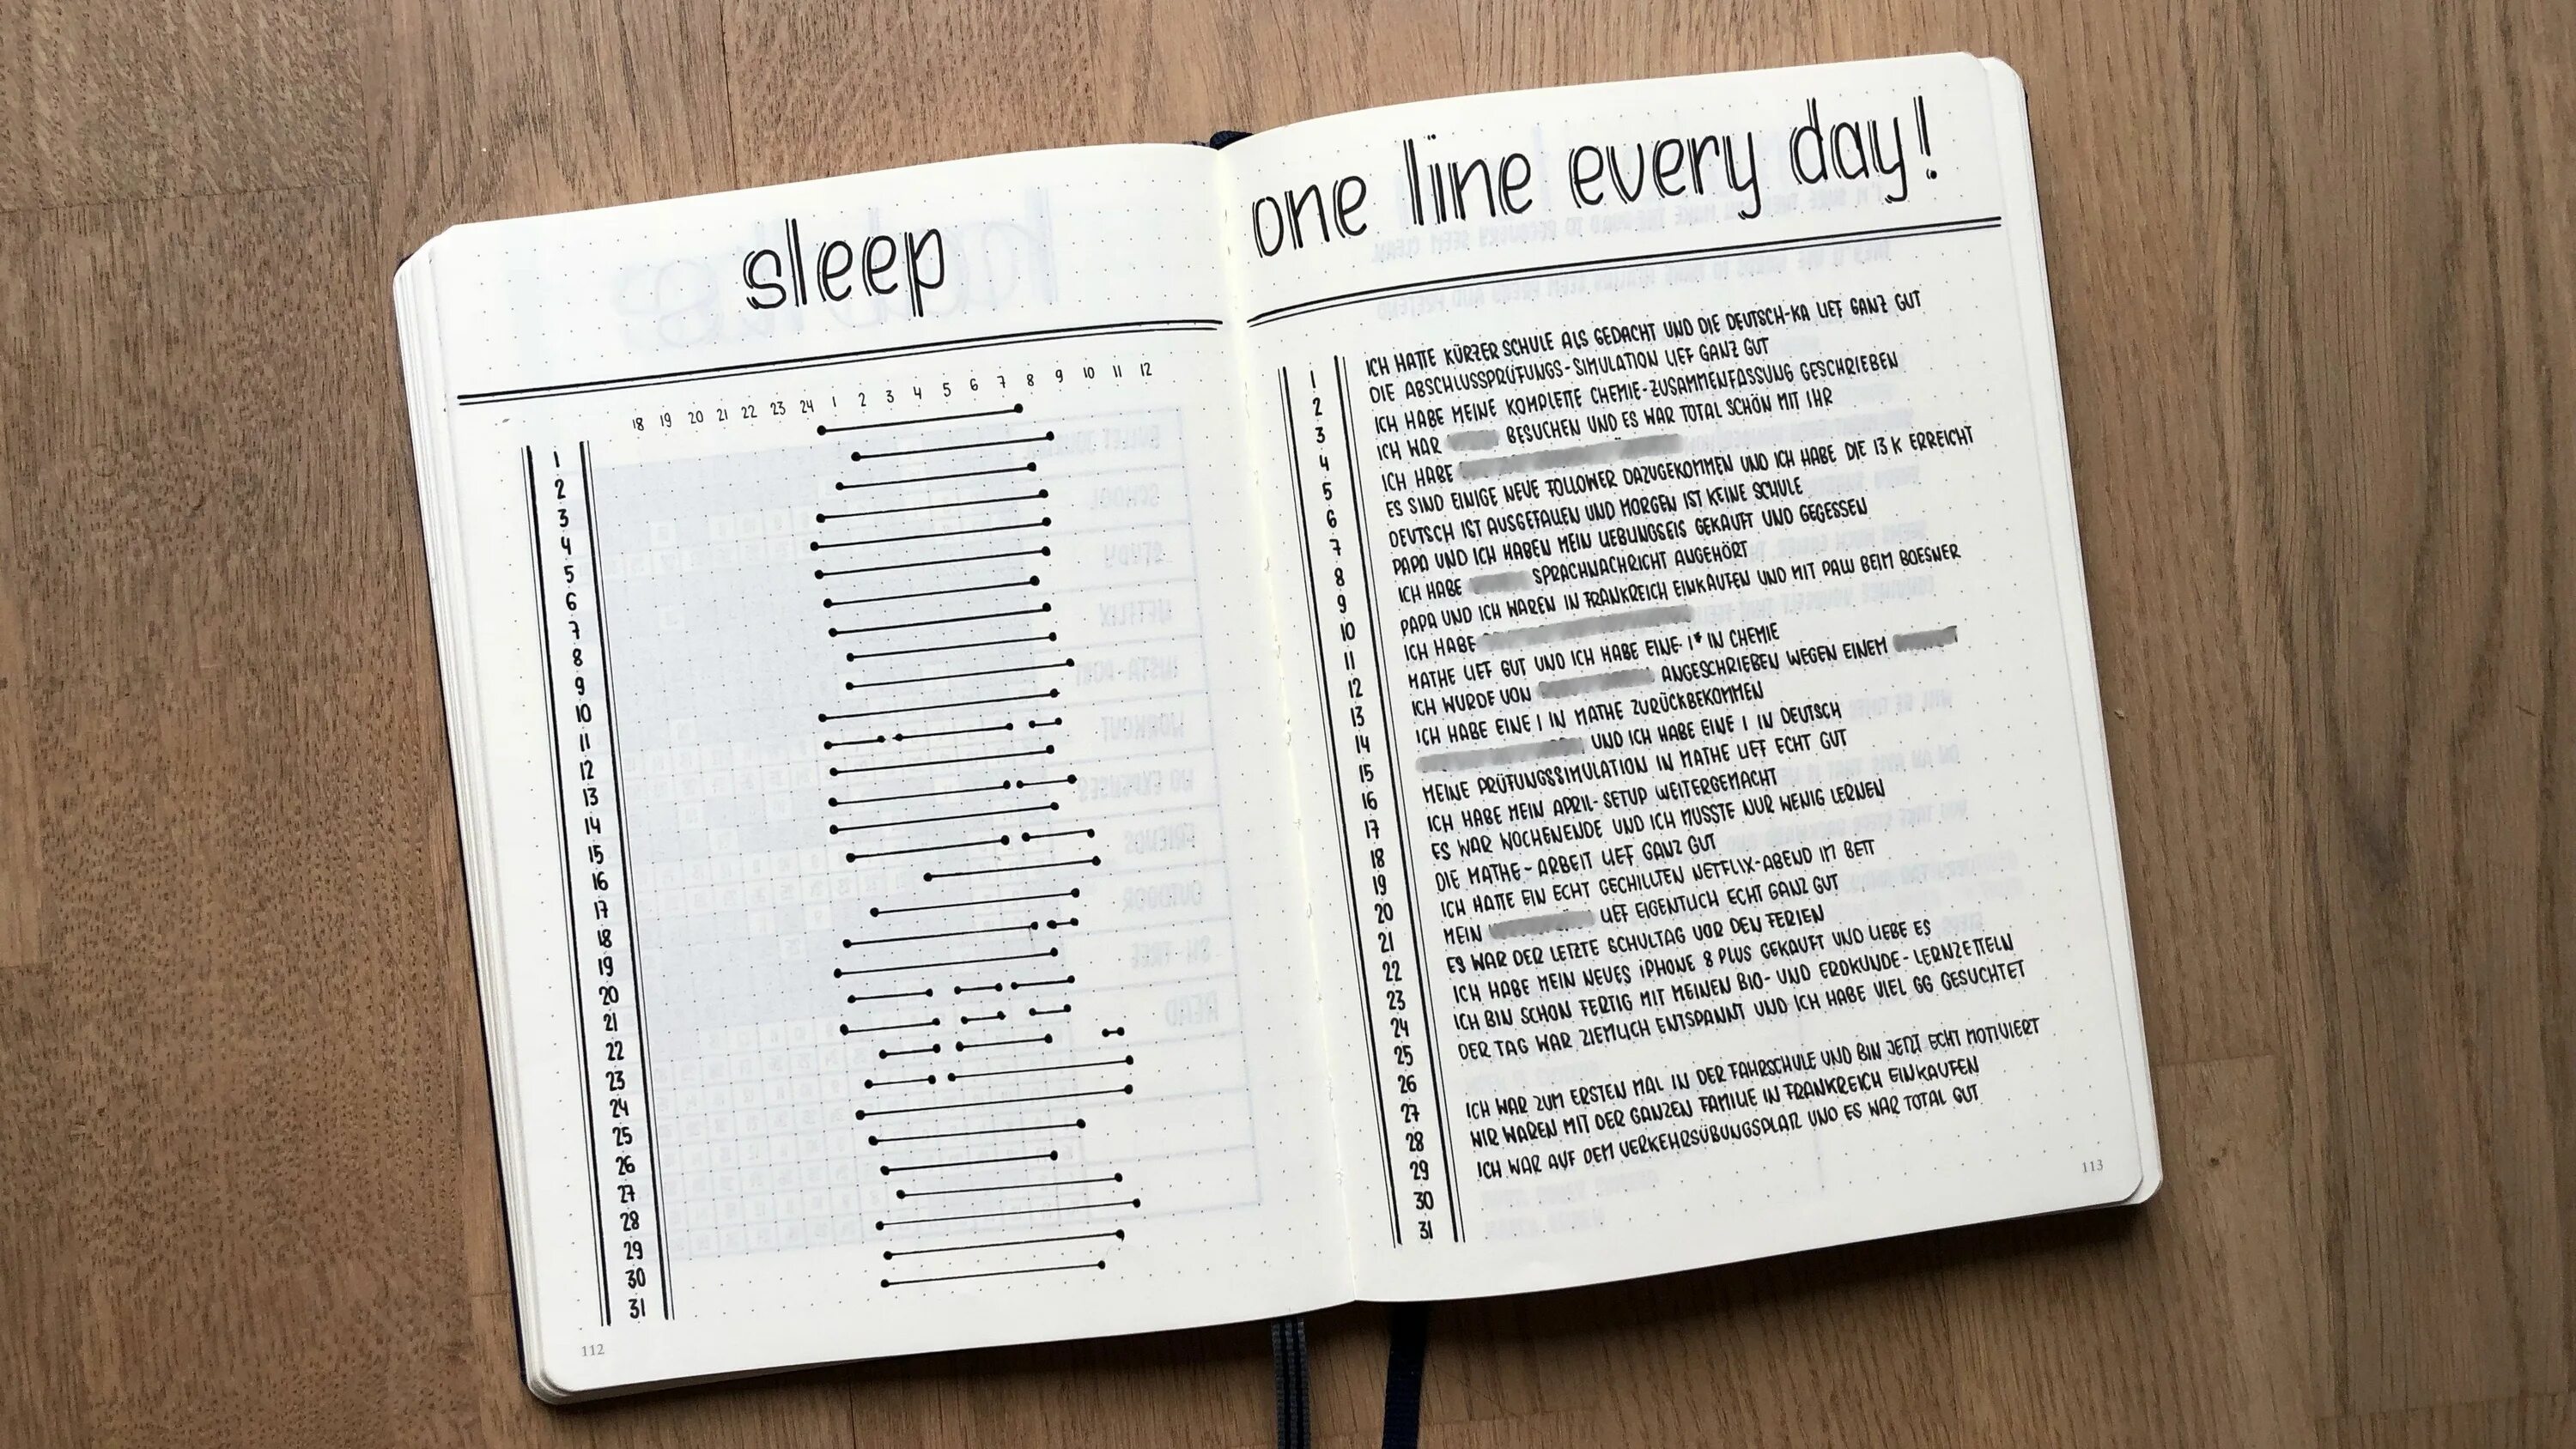 sleep
18 19 20 21 22 23 24 1 2 3 4 5 6 7 8 9 10 11 12
1
2
3
4
5
6
7
8
9
10
11
12
13
14
15
16
17
18
19
20
21
22
23
24
25
26
27
28
29
30
31
112
one line every day!
1 ICH HATTE KÜRZER SCHULE ALS GEDACHT UND DIE DEUTSCH-KA LIEF GANZ GUT
2 DIE ABSCHLUSSPRÜFUNGS-SIMULATION LIEF GANZ GUT
3 ICH HABE MEINE KOMPLETTE CHEMIE-ZUSAMMENFASSUNG GESCHRIEBEN
4 ICH WAR BESUCHEN UND ES WAR TOTAL SCHÖN MIT IHR
5 ICH HABE
6 ES SIND EINIGE NEUE FOLLOWER DAZUGEKOMMEN UND ICH HABE DIE 13 K ERREICHT
7 DEUTSCH IST AUSGEFALLEN UND MORGEN IST KEINE SCHULE
8 PAPA UND ICH HABEN MEIN LIEBLINGSEIS GEKAUFT UND GEGESSEN
9 ICH HABE SPRACHNACHRICHT ANGEHÖRT
10 PAPA UND ICH WAREN IN FRANKREICH EINKAUFEN UND MIT PAUL BEIM BOESNER
11 ICH HABE
12 MATHE LIEF GUT UND ICH HABE EINE 1* IN CHEMIE
13 ICH WURDE VON ANGESCHRIEBEN WEGEN EINEM
14 ICH HABE EINE 1 IN MATHE ZURÜCKBEKOMMEN
15 UND ICH HABE EINE 1 IN DEUTSCH
16 MEINE PRÜFUNGSSIMULATION IN MATHE LIEF ECHT GUT
17 ICH HABE MEIN APRIL-SETUP WEITERGEMACHT
18 ES WAR WOCHENENDE UND ICH MUSSTE NUR WENIG LERNEN
19 DIE MATHE-ARBEIT LIEF GANZ GUT
20 ICH HATTE EIN ECHT GECHILLTEN NETFLIX-ABEND IM BETT
21 MEIN LIEF EIGENTLICH ECHT GANZ GUT
22 ES WAR DER LETZTE SCHULTAG VOR DEN FERIEN
23 ICH HABE MEIN NEUES iPHONE 8 PLUS GEKAUFT UND LIEBE ES
24 ICH BIN SCHON FERTIG MIT MEINEN BIO- UND ERDKUNDE-LERNZETTELN
25 DER TAG WAR ZIEMLICH ENTSPANNT UND ICH HABE VIEL GG GESUCHTET
26
27 ICH WAR ZUM ERSTEN MAL IN DER FAHRSCHULE UND BIN JETZT ECHT MOTIVIERT
28 WIR WAREN MIT DER GANZEN FAMILIE IN FRANKREICH EINKAUFEN
29 ICH WAR AUF DEM VERKEHRSÜBUNGSPLATZ UND ES WAR TOTAL GUT
30
31
113